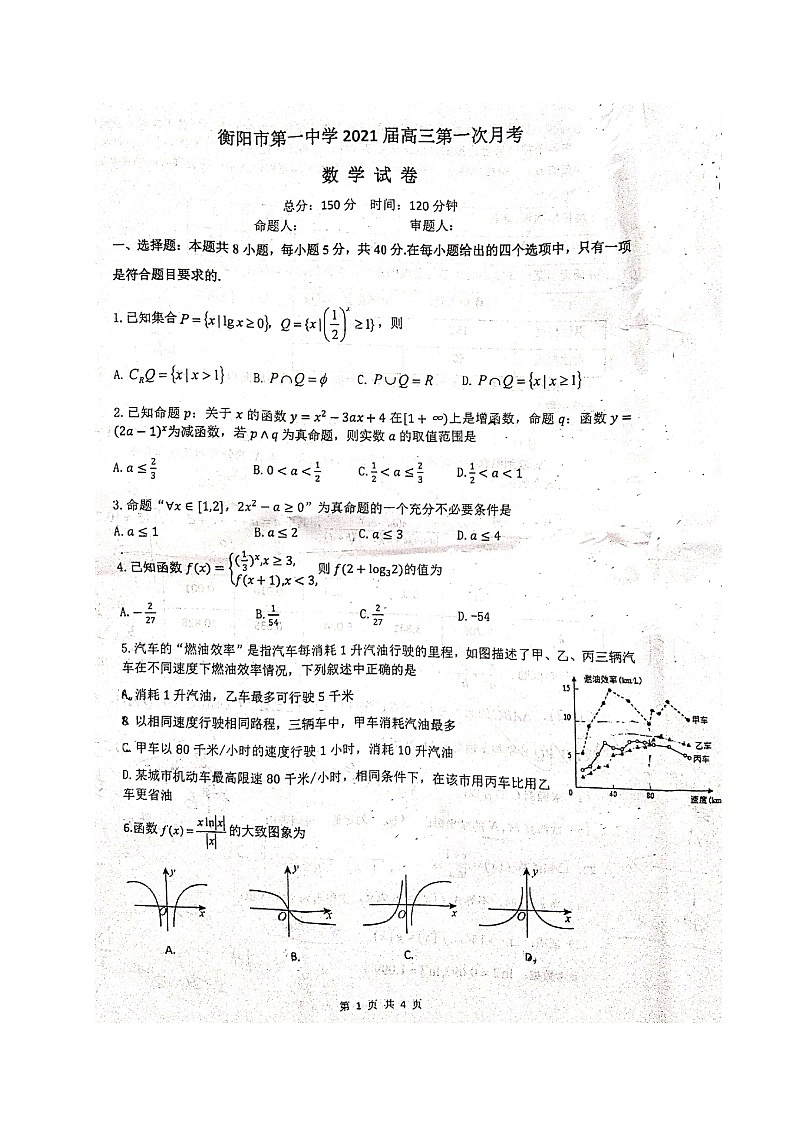 衡阳市第一中学 2021 届高三第一次月考
数 学 试 卷
总分：150 分 时间：120 分钟
命题人： 审题人：
一、选择题：本题共 8 小题，每小题 5 分，共 40 分.在每小题给出的四个选项中，只有一项
是符合题目要求的.
1.已知集合 P={x|lg x≥0}，Q={x|(1/2)^x≥1}，则
A. C_R Q={x|x>1} B. P∩Q=ϕ C. P∪Q=R D. P∩Q={x|x≥1}
2. 已知命题 p：关于 x 的函数 y=x²−3ax+4 在[1+∞)上是增函数，命题 q：函数 y=
(2a−1)^x为减函数，若 p∧q 为真命题，则实数 a 的取值范围是
A. a≤2/3 B. 0<a<1/2 C. 1/2<a≤2/3 D. 1/2<a<1
3. 命题“∀x∈[1,2]，2x²−a≥0”为真命题的一个充分不必要条件是
A. a≤1 B. a≤2 C. a≤3 D. a≤4
4. 已知函数 f(x)={(1/3)^x,x≥3, f(x+1),x<3, 则 f(2+log₃2)的值为
A. −2/27 B. 1/54 C. 2/27 D. -54
5. 汽车的“燃油效率”是指汽车每消耗 1 升汽油行驶的里程，如图描述了甲、乙、丙三辆汽
车在不同速度下燃油效率情况，下列叙述中正确的是
A. 消耗 1 升汽油，乙车最多可行驶 5 千米
B. 以相同速度行驶相同路程，三辆车中，甲车消耗汽油最多
C. 甲车以 80 千米/小时的速度行驶 1 小时，消耗 10 升汽油
D. 某城市机动车最高限速 80 千米/小时，相同条件下，在该市用丙车比用乙
车更省油
燃油效率(km/L)
15
10
5
甲车
乙车
丙车
O 40 80
速度(km
6.函数 f(x)=x ln|x|/|x| 的大致图象为
y O x
y O x
y O x
y O x
A. B. C. D.
第 1 页 共 4 页